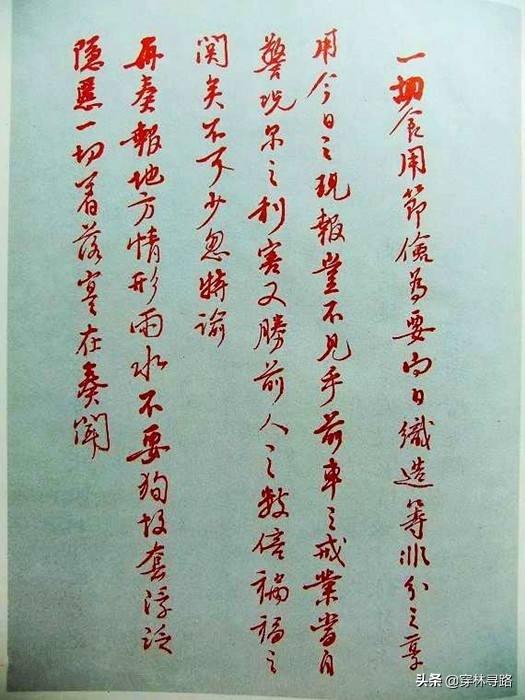 一切食用節儉為要向日織造等非分之享
用今日之現報豈不見乎前車之戒業當自
警况尔之利害又勝前人之数倍禍福之
関矣不可少忽特諭
再奏報地方情形雨水不要狥故套浮泛
隱匿一切着落寔在奏聞
头条 @穿林寻路